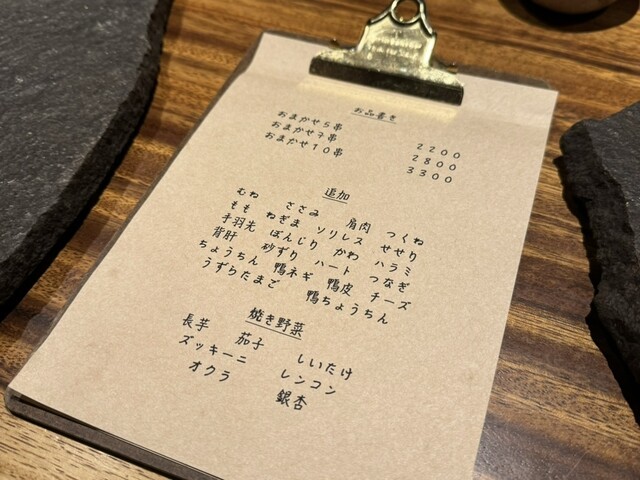 お品書き
おまかせ5串 2200
おまかせ7串 2800
おまかせ10串 3300
追加
むね ささみ 肩肉 つくね
もも ねぎま ソリレス せせり
手羽先 ぼんじり かわ ハラミ
背肝 砂ずり ハート つなぎ
ちょうちん 鴨ネギ 鴨皮 チーズ
うずらたまご 鴨ちょうちん
焼き野菜
長芋 茄子 しいたけ
ズッキーニ レンコン
オクラ 銀杏